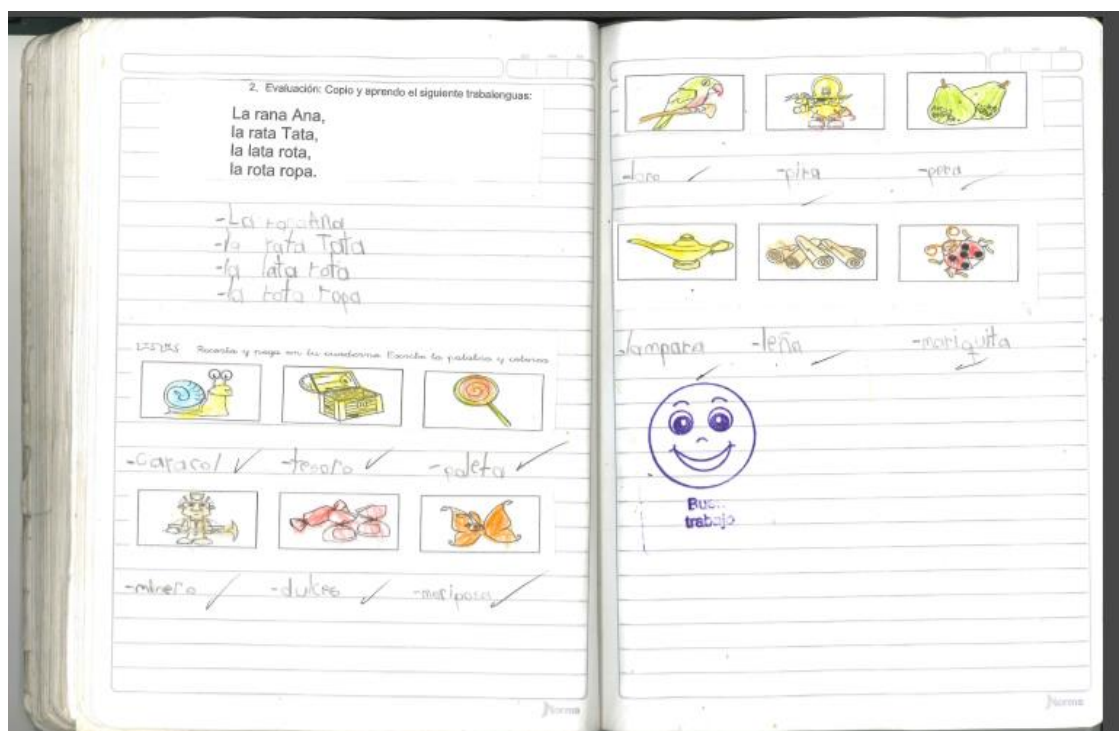 2. Evaluación: Copio y aprendo el siguiente trabalenguas:
La rana Ana,
la rata Tata,
la lata rota,
la rota ropa.
-La Ana
-la rata Tata
-la lata rota
-la rota ropa
Recorta y pega en tu cuaderno Escribe la palabra y colorea
-caracol -tesoro -paleta
-minero -dulces -mariposa
Norma
-loro -pira -pera
-lampara -leña -mariquita
Buen
trabajo
Norma